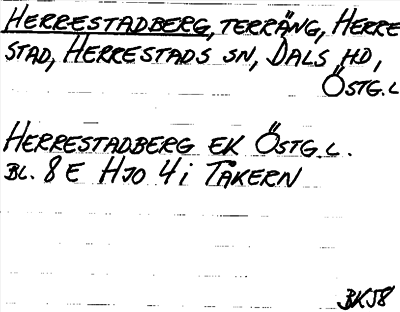 HERRESTADBERG, TERRÄNG, HERRE
STAD, HERRESTADS SN, DALS HD,
ÖSTG.L
HERRESTADBERG EK ÖSTG.L.
BL. 8 E HJO 4 i TÅKERN
BK58